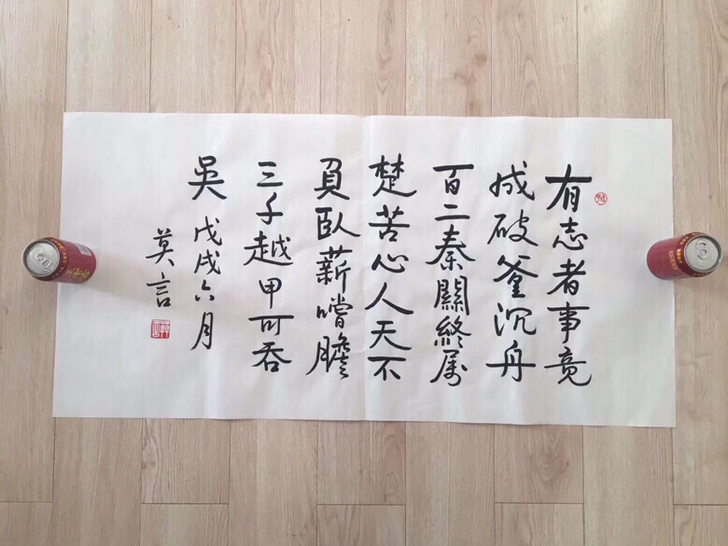 有志者事竟
成破釜沉舟
百二秦關終属
楚苦心人天不
負臥薪嚐膽
三千越甲可吞
吳
戊戌六月
莫言